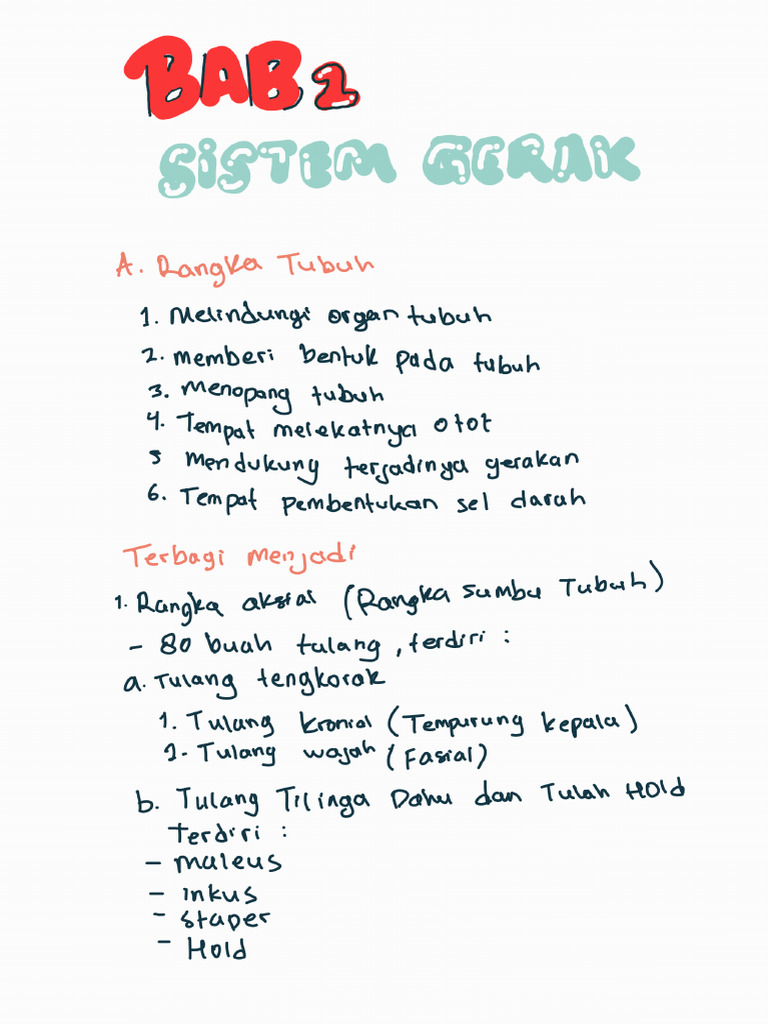 BAB 2
SISTEM GERAK
A. Rangka Tubuh
1. Melindungi organ tubuh
2. memberi bentuk pada tubuh
3. Menopang tubuh
4. Tempat melekatnya otot
5 Mendukung terjadinya gerakan
6. Tempat pembentukan sel darah
Terbagi menjadi
1. Rangka aksial (Rangka sumbu Tubuh)
- 80 buah tulang, terdiri :
a. Tulang tengkorak
1. Tulang kronial (Tempurung kepala)
2. Tulang wajah (Fasial)
b. Tulang Tilinga Dahu dan Tulah Hold
Terdiri :
- maleus
- inkus
- staper
- Hold